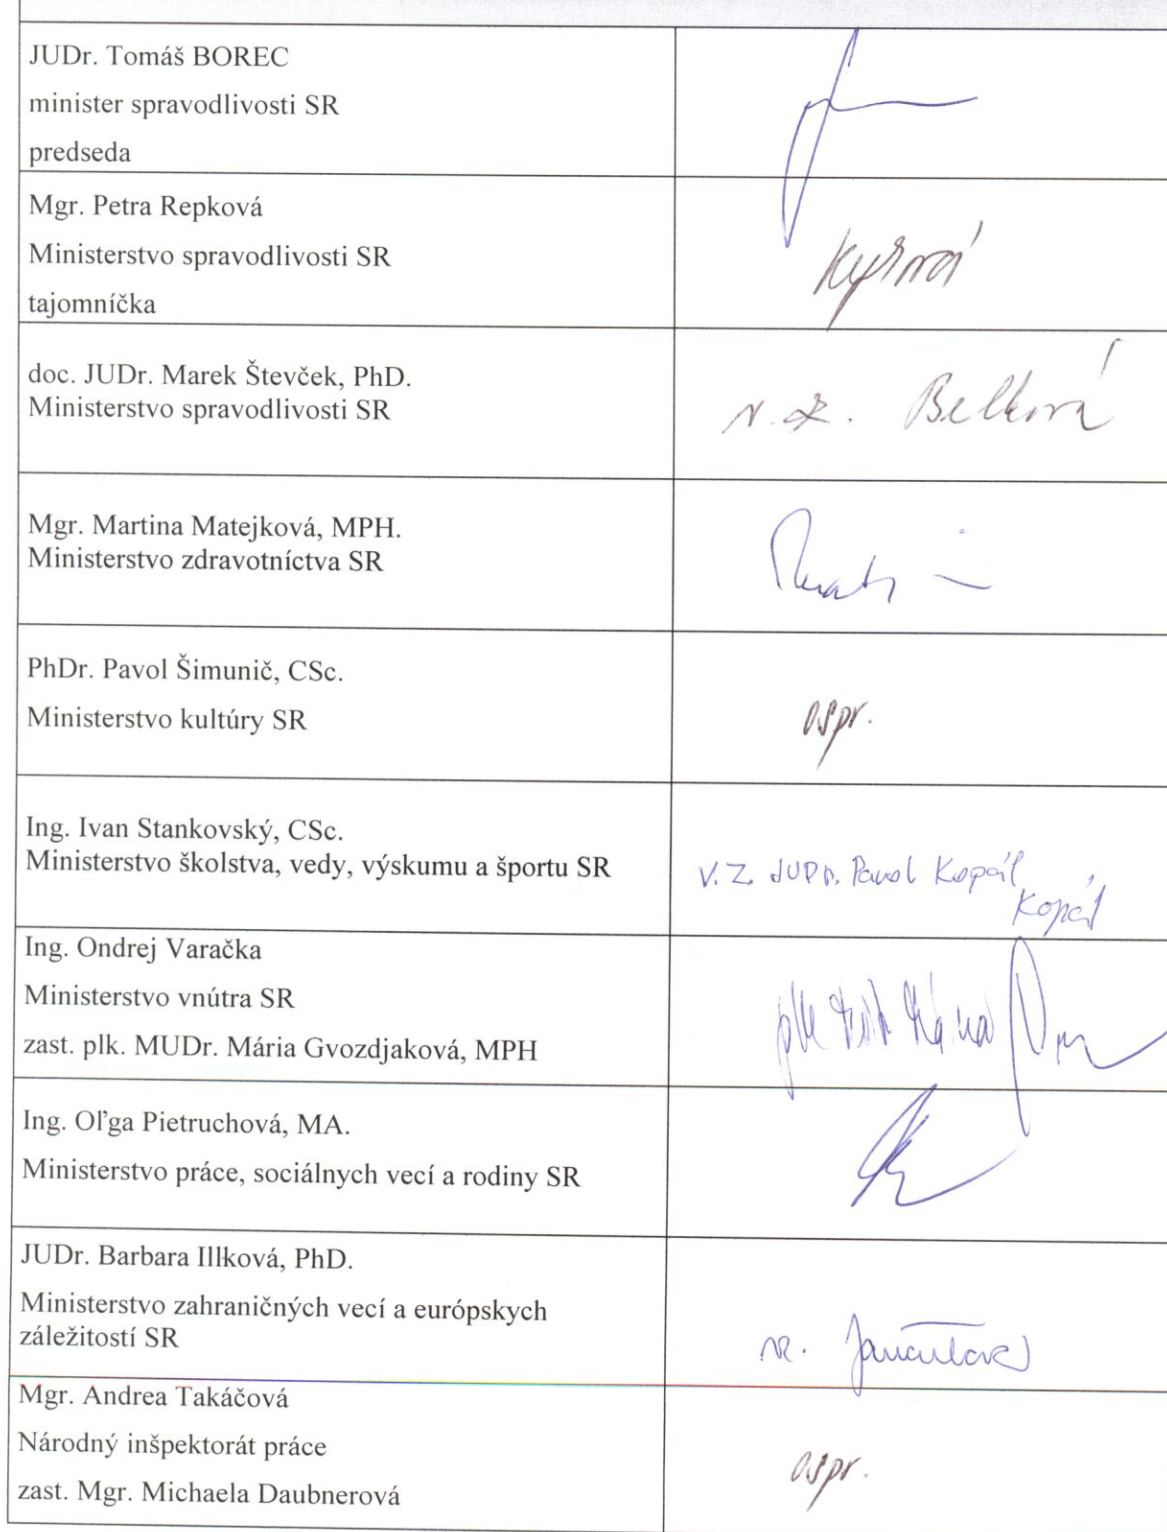 JUDr. Tomáš BOREC
minister spravodlivosti SR
predseda
Mgr. Petra Repková
Ministerstvo spravodlivosti SR
tajomníčka
doc. JUDr. Marek Števček, PhD.
Ministerstvo spravodlivosti SR
Mgr. Martina Matejková, MPH.
Ministerstvo zdravotníctva SR
PhDr. Pavol Šimunič, CSc.
Ministerstvo kultúry SR
ospr.
Ing. Ivan Stankovský, CSc.
Ministerstvo školstva, vedy, výskumu a športu SR
v. z. JUDr. Pavol Kopál
Kopál
Ing. Ondrej Varačka
Ministerstvo vnútra SR
zast. plk. MUDr. Mária Gvozdjaková, MPH
Ing. Oľga Pietruchová, MA.
Ministerstvo práce, sociálnych vecí a rodiny SR
JUDr. Barbara Illková, PhD.
Ministerstvo zahraničných vecí a európskych
záležitostí SR
Mgr. Andrea Takáčová
Národný inšpektorát práce
zast. Mgr. Michaela Daubnerová
ospr.